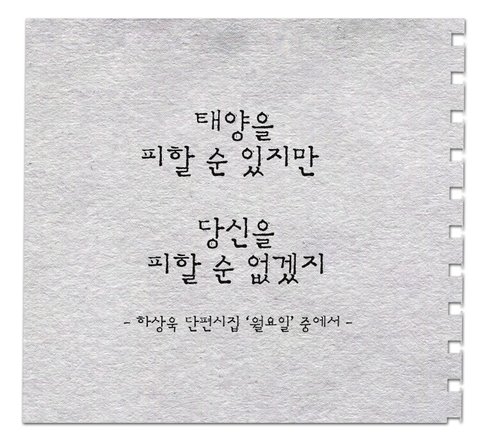 태양을
피할 순 있지만
당신을
피할 순 없겠지
- 하상욱 단편시집 '월요일' 중에서 -